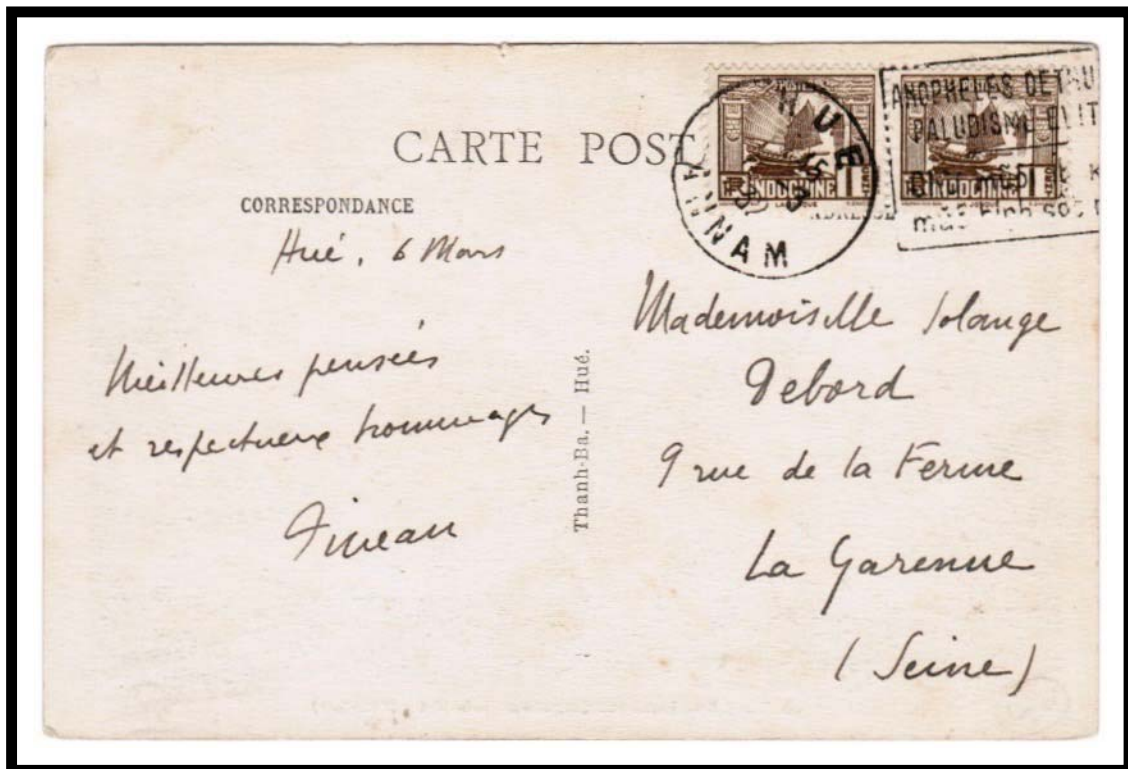 CARTE POST
CORRESPONDANCE
Hué, 6 Mars
Meilleures pensées
et respectueux hommages
Thanh-Ba. — Hué.
HUE
ANNAM
INDOCHINE 1
INDOCHINE 1
ANOPHELES DETRU
PALUDISME EVIT
Mademoiselle Solange
Debord
9 rue de la Ferme
La Garenne
(Seine)